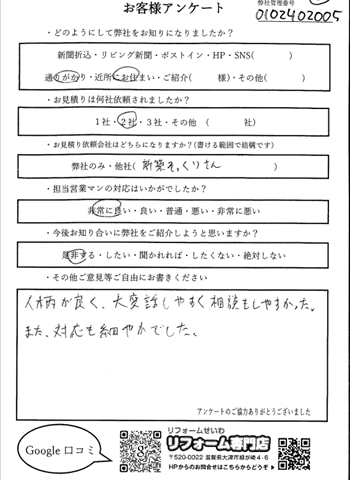 お客様アンケート
弊社管理番号
0102402005
・どのようにして弊社をお知りになりましたか？
新聞折込・リビング新聞・ポストイン・HP・SNS( )
通りがかり・近所にお住まい・ご紹介( 様)・その他( )
・お見積りは何社依頼されましたか？
1社・2社・3社・その他 ( 社)
・お見積り依頼会社はどちらになりますか？(書ける範囲で結構です)
弊社のみ・他社( 新築そっくりさん )
・担当営業マンの対応はいかがでしたか？
非常に良い・良い・普通・悪い・非常に悪い
・今後お知り合いに弊社をご紹介しようと思いますか？
是非する・したい・聞かれれば・したくない・絶対しない
・その他ご意見等ご自由にお書きください
人柄が良く、大変話しやすく相談もしやすかった。
また、対応も細やかでした。
アンケートのご協力ありがとうございました
Google 口コミ
リフォームせいわ
リフォーム専門店
〒520-0022 滋賀県大津市柳が崎4-6
HPからのお問合せはこちらからどうぞ▶